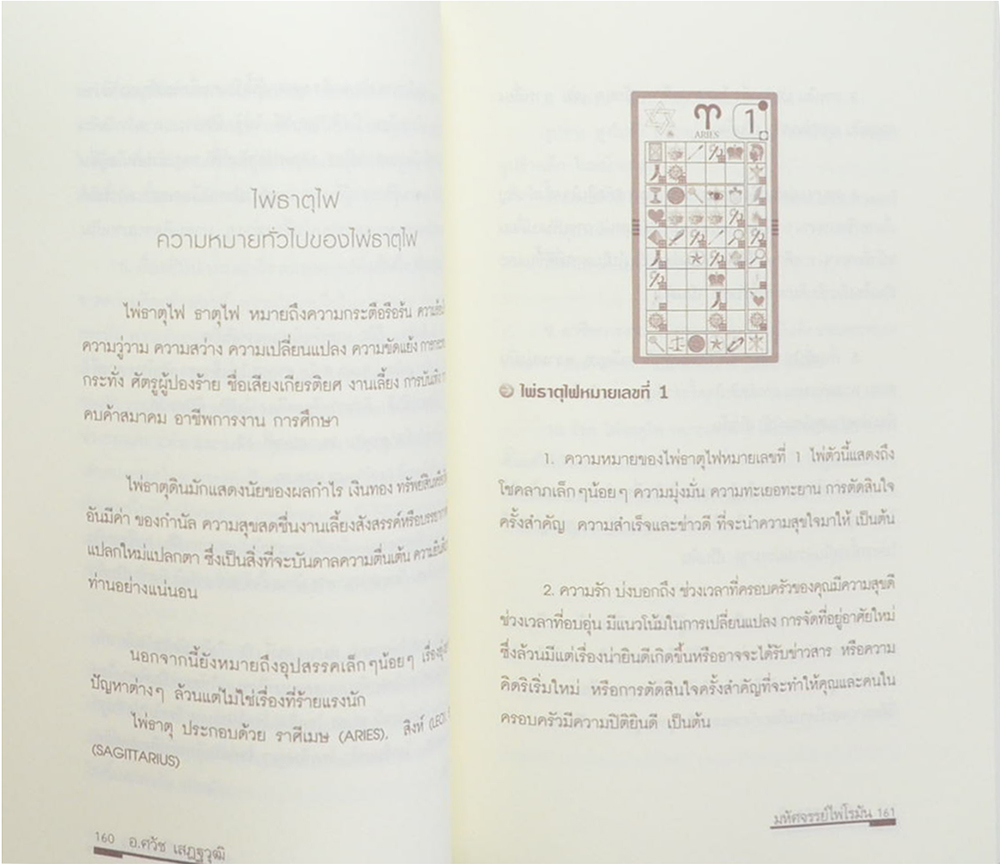 ไพ่ธาตุไฟ
ความหมายทั่วไปของไพ่ธาตุไฟ
ไพ่ธาตุไฟ ธาตุไฟ หมายถึงความกระตือรือร้น
ความวู่วาม ความสว่าง ความเปลี่ยนแปลง ความขัดแย้ง
กระทั่ง ศัตรูผู้ปองร้าย ชื่อเสียงเกียรติยศ งานเลี้ยง การบันเทิง
คบค้าสมาคม อาชีพการงาน การศึกษา
ไพ่ธาตุดินมักแสดงนัยของผลกำไร เงินทอง ทรัพย์สิน
อันมีค่า ของกำนัล ความสุขสดชื่นงานเลี้ยงสังสรรค์หรือ
แปลกใหม่แปลกตา ซึ่งเป็นสิ่งที่จะบันดาลความตื่นเต้น
ท่านอย่างแน่นอน
นอกจากนี้ยังหมายถึงอุปสรรคเล็กๆน้อยๆ
ปัญหาต่างๆ ล้วนแต่ไม่ใช่เรื่องที่ร้ายแรงนัก
ไพ่ธาตุ ประกอบด้วย ราศีเมษ (ARIES). สิงห์ (LEO)
(SAGITTARIUS)
160 อ.ศวัช เสฎฐวุฒิ
ARIES 1
ไพ่ธาตุไฟหมายเลขที่ 1
1. ความหมายของไพ่ธาตุไฟหมายเลขที่ 1 ไพ่ตัวนี้แสดงถึง
โชคลาภเล็กๆน้อยๆ ความมุ่งมั่น ความทะเยอทะยาน การตัดสินใจ
ครั้งสำคัญ ความสำเร็จและข่าวดี ที่จะนำความสุขใจมาให้ เป็นต้น
2. ความรัก บ่งบอกถึง ช่วงเวลาที่ครอบครัวของคุณมีความสุขดี
ช่วงเวลาที่อบอุ่น มีแนวโน้มในการเปลี่ยนแปลง การจัดที่อยู่อาศัยใหม่
ซึ่งล้วนมีแต่เรื่องน่ายินดีเกิดขึ้นหรืออาจจะได้รับข่าวสาร หรือความ
คิดริเริ่มใหม่ หรือการตัดสินใจครั้งสำคัญที่จะทำให้คุณและคนใน
ครอบครัวมีความปิติยินดี เป็นต้น
มหัศจรรย์ไพ่โรมัน 161